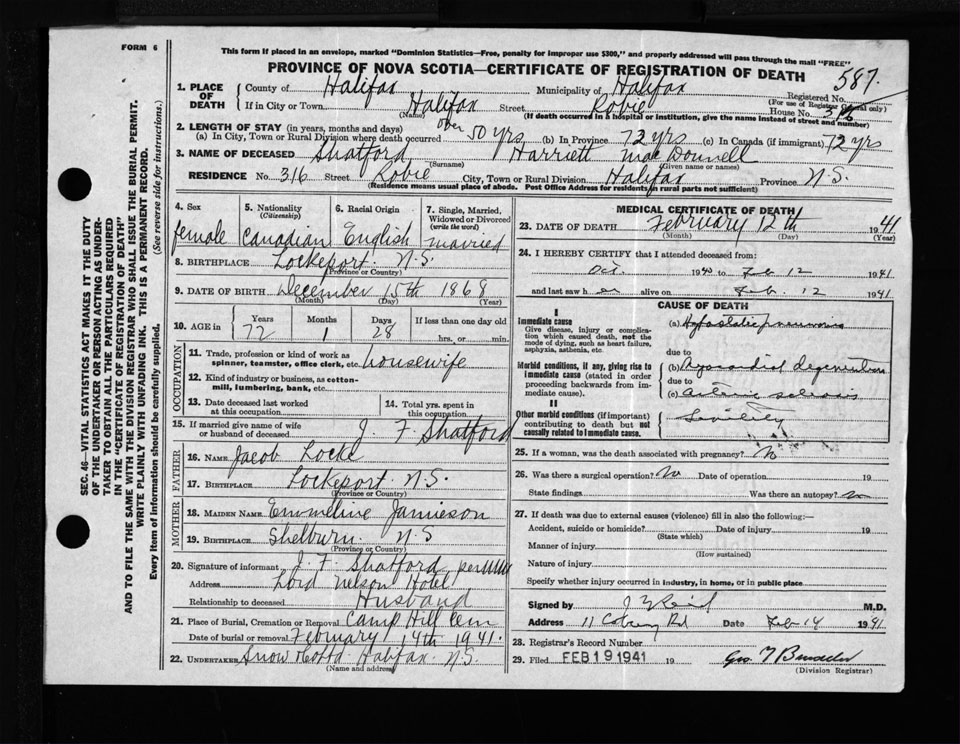 FORM 6
This form if placed in an envelope, marked "Dominion Statistics—Free, penalty for improper use $300," and properly addressed will pass through the mail "FREE"
PROVINCE OF NOVA SCOTIA—CERTIFICATE OF REGISTRATION OF DEATH
587.
1. PLACE OF DEATH County of Halifax Municipality of Halifax Registered No.
(For use of Registrar General only)
If in City or Town Halifax Street Robie House No. 316
(Name) (If death occurred in a hospital or institution, give the name instead of street and number)
2. LENGTH OF STAY (in years, months and days)
(a) In City, Town or Rural Division where death occurred over 50 yrs (b) In Province 72 yrs (c) In Canada (if immigrant) 72 yrs
3. NAME OF DECEASED Shatford Harriett MacDonnell
(Surname) (Given name or names)
RESIDENCE No. 316 Street Robie City, Town or Rural Division Halifax Province N.S.
(Residence means usual place of abode. Post Office Address for residents in rural parts not sufficient)
SEC. 46—VITAL STATISTICS ACT MAKES IT THE DUTY
OF THE UNDERTAKER OR PERSON ACTING AS UNDER-
TAKER TO OBTAIN ALL THE PARTICULARS REQUIRED
IN THE "CERTIFICATE OF REGISTRATION OF DEATH"
AND TO FILE THE SAME WITH THE DIVISION REGISTRAR WHO SHALL ISSUE THE BURIAL PERMIT.
WRITE PLAINLY WITH UNFADING INK. THIS IS A PERMANENT RECORD.
Every item of information should be carefully supplied. (See reverse side for instructions.)
4. Sex 5. Nationality (Citizenship) 6. Racial Origin 7. Single, Married, Widowed or Divorced (write the word)
female Canadian English married
8. BIRTHPLACE Lockeport N.S.
(Province or Country)
9. DATE OF BIRTH December 15th 1868
(Month) (Day) (Year)
10. AGE in Years Months Days If less than one day old
72 1 28 hrs. or min.
OCCUPATION
11. Trade, profession or kind of work as spinner, teamster, office clerk, etc. housewife
12. Kind of industry or business, as cotton-mill, lumbering, bank, etc.
13. Date deceased last worked at this occupation
14. Total yrs. spent in this occupation
15. If married give name of wife or husband of deceased J. F. Shatford
FATHER
16. Name Jacob Locke
17. Birthplace Lockeport N.S.
(Province or Country)
MOTHER
18. Maiden Name Emmeline Jamieson
19. Birthplace Shelburn N.S
(Province or Country)
20. Signature of informant J. F. Shatford per
Address Lord Nelson Hotel
Relationship to deceased Husband
21. Place of Burial, Cremation or Removal Camp Hill Cem
Date of burial or removal February 14th 1941.
22. UNDERTAKER Snow Halifax N.S.
(Name and address)
MEDICAL CERTIFICATE OF DEATH
23. DATE OF DEATH February 12th 1941
(Month) (Day) (Year)
24. I HEREBY CERTIFY that I attended deceased from:
Oct. 1940 to Feb 12 1941
and last saw her alive on Feb. 12 1941
CAUSE OF DEATH
I
Immediate cause
Give disease, injury or complication which caused death, not the mode of dying, such as heart failure, asphyxia, asthenia, etc.
(a) Hypostatic pneumonia
due to
Morbid conditions, if any, giving rise to immediate cause (stated in order proceeding backwards from immediate cause).
(b) Myocardial degeneration
due to
(c) Arterio sclerosis
II
Other morbid conditions (if important) contributing to death but not causally related to immediate cause.
Senility
25. If a woman, was the death associated with pregnancy? No
26. Was there a surgical operation? No Date of operation 19
State findings Was there an autopsy? No
27. If death was due to external causes (violence) fill in also the following:—
Accident, suicide or homicide? Date of injury 19
(State which)
Manner of injury
(How sustained)
Nature of injury
Specify whether injury occurred in industry, in home, or in public place
Signed by Reid M.D.
Address 11 Coburg Rd Date Feb 14 1941
28. Registrar's Record Number
29. Filed FEB 19 1941 19 Geo.
(Division Registrar)